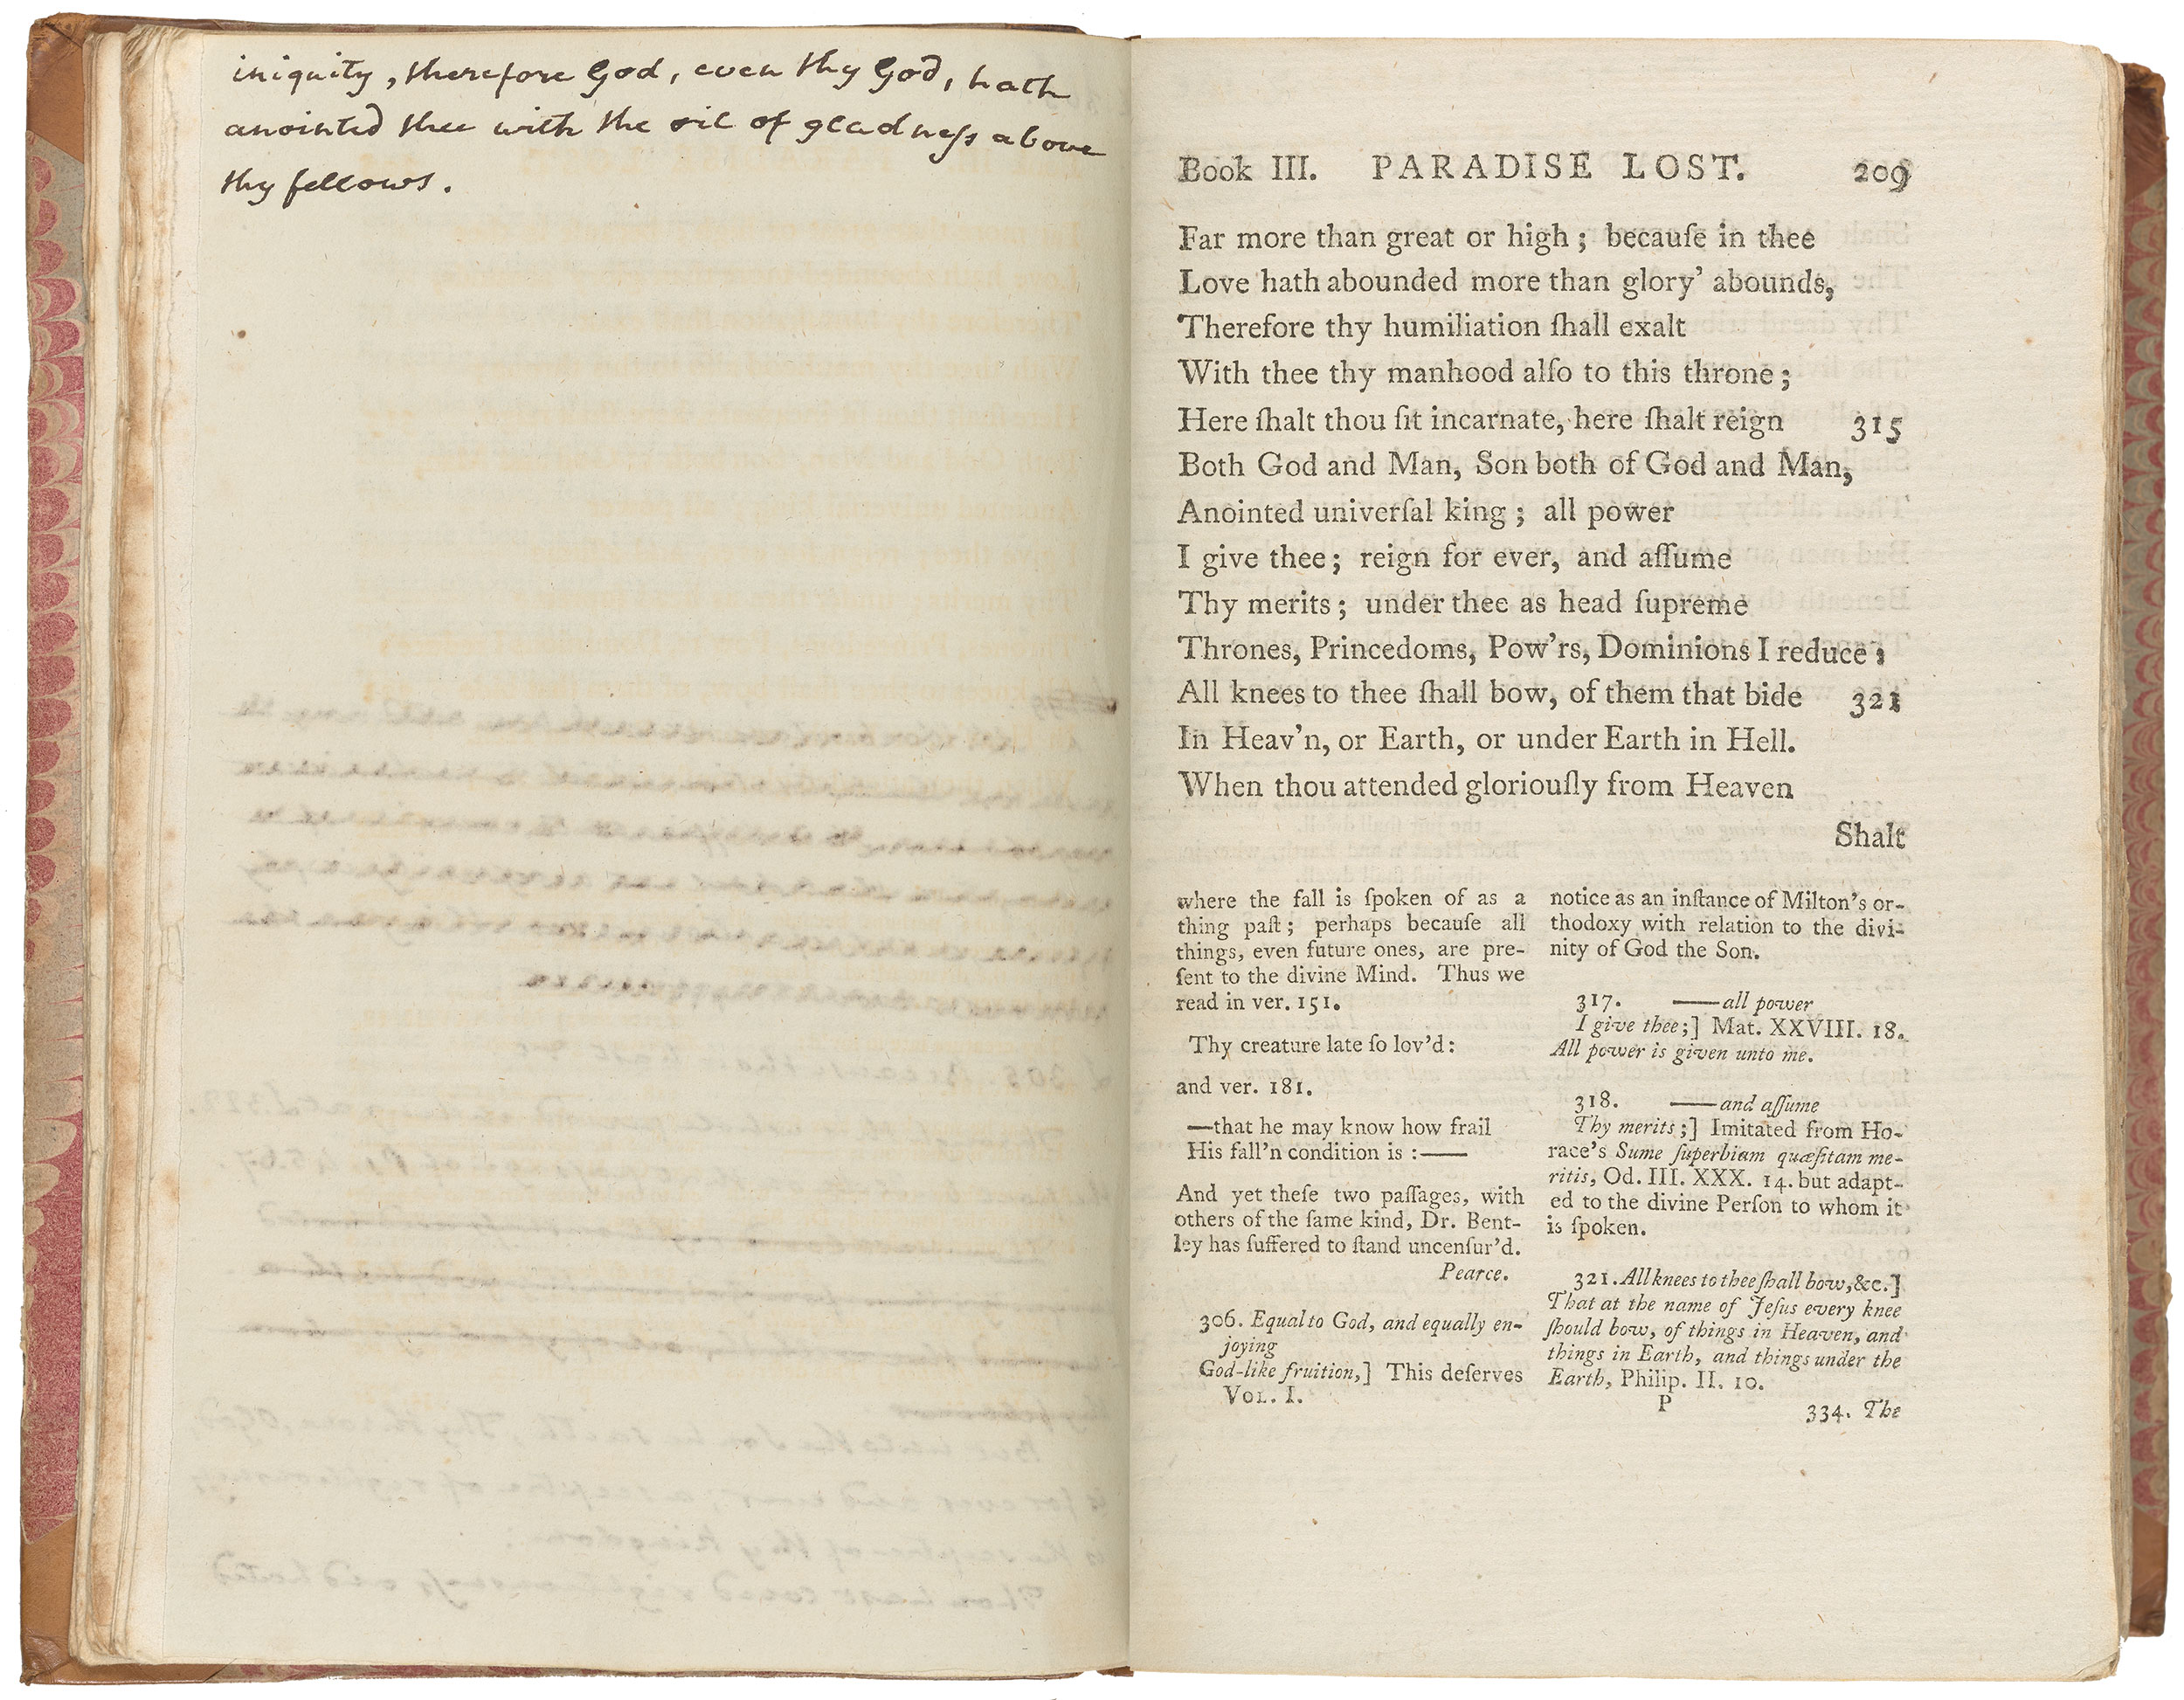 iniquity, therefore God, even thy God, hath
anointed thee with the oil of gladneſs above
thy fellows.
Book III. PARADISE LOST. 209
Far more than great or high; becauſe in thee
Love hath abounded more than glory' abounds,
Therefore thy humiliation ſhall exalt
With thee thy manhood alſo to this throne;
Here ſhalt thou ſit incarnate, here ſhalt reign 315
Both God and Man, Son both of God and Man,
Anointed univerſal king; all power
I give thee; reign for ever, and aſſume
Thy merits; under thee as head ſupreme
Thrones, Princedoms, Pow'rs, Dominions I reduce;
All knees to thee ſhall bow, of them that bide 321
In Heav'n, or Earth, or under Earth in Hell.
When thou attended gloriouſly from Heaven
Shalt
where the fall is ſpoken of as a
thing paſt; perhaps becauſe all
things, even future ones, are pre-
ſent to the divine Mind. Thus we
read in ver. 151.
Thy creature late ſo lov'd:
and ver. 181.
—that he may know how frail
His fall'n condition is:——
And yet theſe two paſſages, with
others of the ſame kind, Dr. Bent-
ley has ſuffered to ſtand uncenſur'd.
Pearce.
306. Equal to God, and equally en-
joying
God-like fruition,] This deſerves
VOL. I.
notice as an inſtance of Milton's or-
thodoxy with relation to the divi-
nity of God the Son.
317. ——all power
I give thee;] Mat. XXVIII. 18.
All power is given unto me.
318. ——and aſſume
Thy merits;] Imitated from Ho-
race's Sume ſuperbiam quæſitam me-
ritis, Od. III. XXX. 14. but adapt-
ed to the divine Perſon to whom it
is ſpoken.
321. All knees to thee ſhall bow, &c.]
That at the name of Jeſus every knee
ſhould bow, of things in Heaven, and
things in Earth, and things under the
Earth, Philip. II. 10.
P
334. The